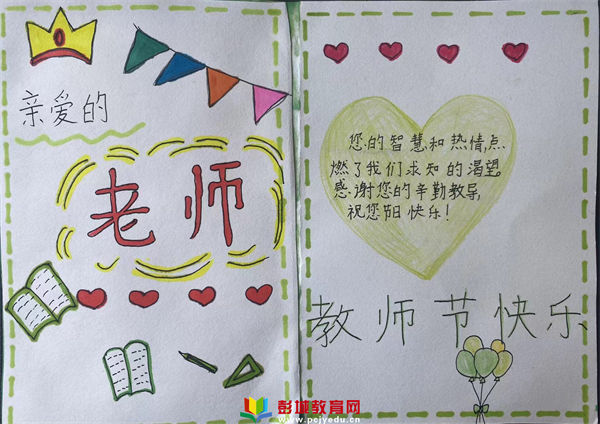 亲爱的
老师
您的智慧和热情点
燃了我们求知的渴望,
感谢您的辛勤教导,
祝您节日快乐!
教师节快乐
彭城教育网
www.pcjyedu.cn